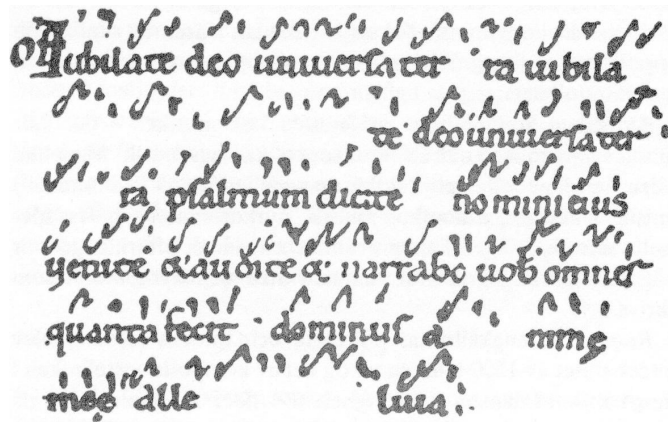 Of Iubilate deo uniuersa ter ra iubila
te deo uniuersa ter
ra psalmum dicite nomini eius
uenite & audite & narrabo uob omnis
quanta fecit dominus a nime
mee alle luia.